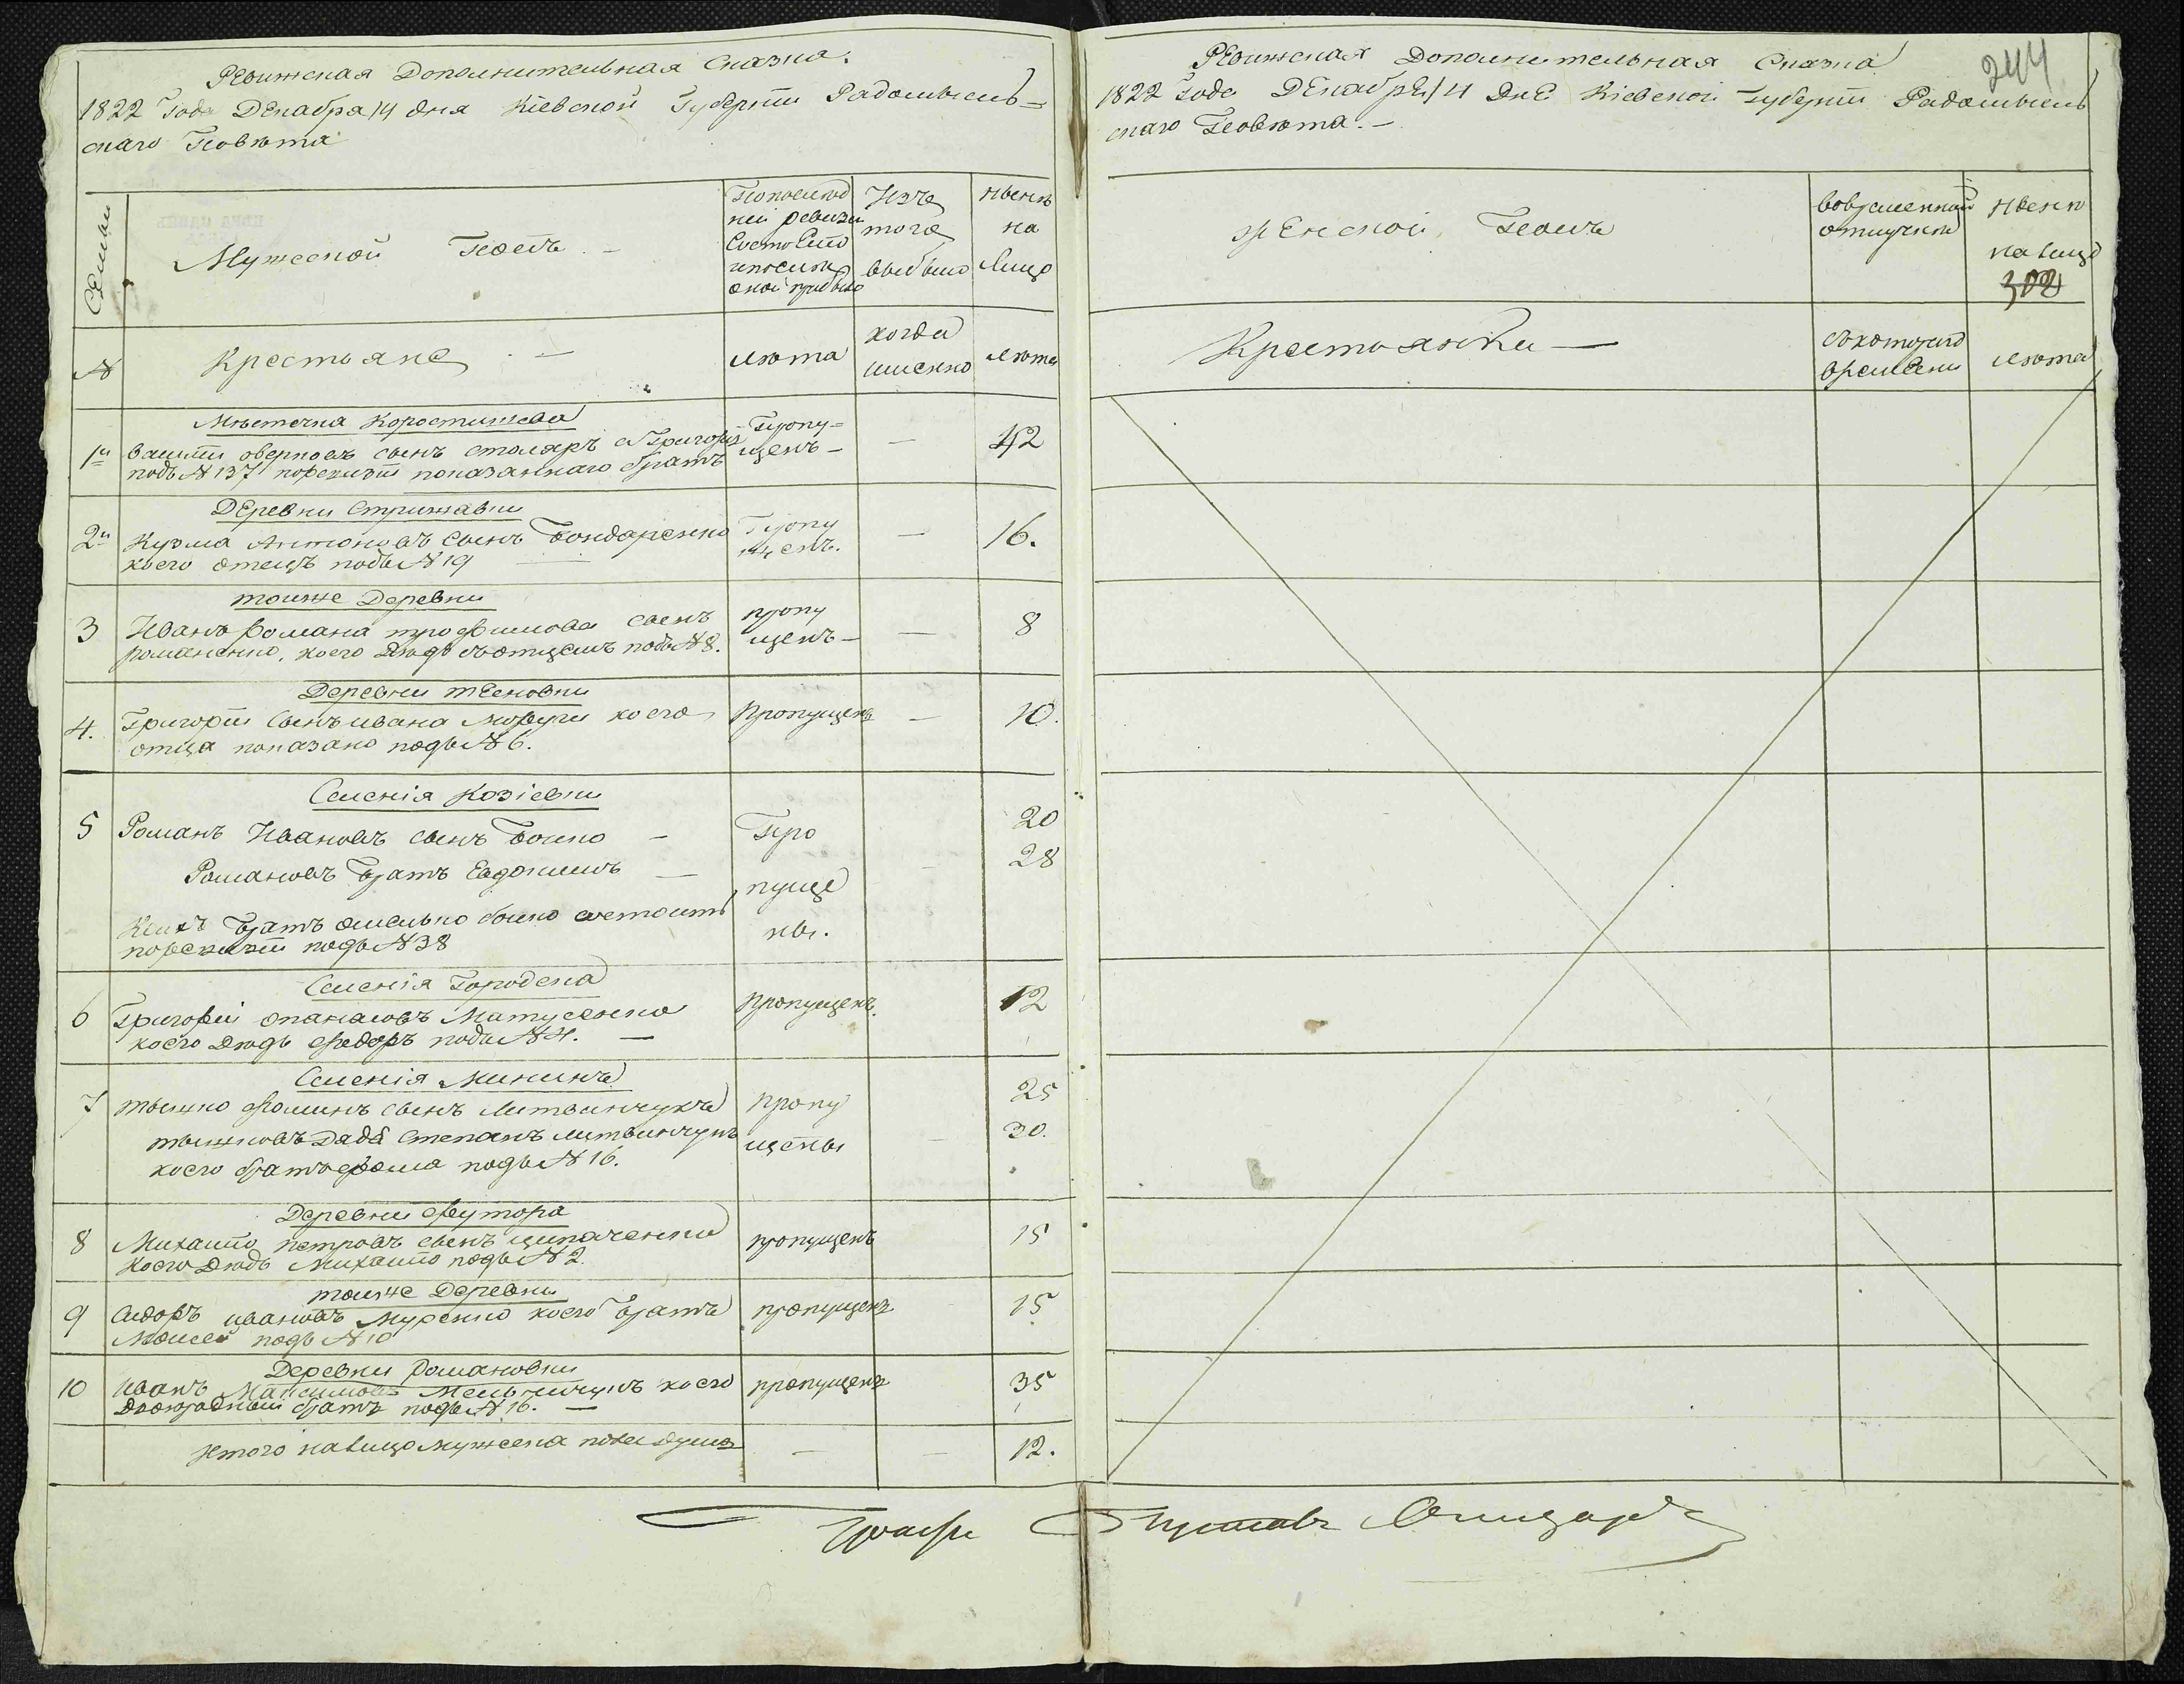 Ревижская Дополнительная Сказка.
1822 Года Декабря 14 дня Кіевской Губерніи Радомысль=
скаго Повѣта
Семьи
Мужеской Полъ —
По послѣд
ней ревизіи
Состояло
и послѣ
оной прибыло
Изъ
того
выбыло
Нынѣ
на
Лицо
№
Крестьяне —
лѣта
когда
именно
лѣта
Мѣстечка Коростишева
1й Василій сынъ столяръ а Григорія
подъ №137 поревизіи показаннаго братъ
Пропу=
щенъ —
—
42
Деревни Стрижавки
2й Кузма Антоновъ сынъ Бондаренко
коего отецъ подъ №19 —
Пропу
щенъ.
—
16.
тоиже Деревни
3 Иванъ Романа трофимова сынъ
романенко, коего Дядь съотцемъ подъ №8.
пропу
щенъ —
—
8
Деревни тесновки
4. Григорій Сынъ ивана Мофуги коего
отца показано подъ №6.
Пропущенъ
—
10.
Селенія Козіевки
5 Романъ Ивановъ сынъ Боико —
20
Романовъ Братъ Евдокимъ —
28
Коихъ Братъ омелько боико состоитъ
поревизіи подъ №38
Про
пуще
ны.
—
Селенія Городска
6 Григорій опанасовъ Матусенко
коего Дядь федоръ подъ №4. —
Пропущенъ.
12
Селенія Минины
7 тышко фоминъ сынъ Литвинчукъ
25
тышковъ Дядя Степанъ литвинчукъ
30.
коего братъ фома подъ №16.
пропу
щены
—
Деревни футора
8 Михаило петровъ сынъ ципаченко
коего Дядь Михаило подъ №2.
пропущенъ
15
тоиже Деревни
9 Сидоръ ивановъ Муренко коего Братъ
Моисей подъ №10
пропущенъ
15
Деревни романовки
10 Иванъ Максимовъ Мельничукъ коего
двоюродный братъ подъ №16. —
пропущенъ
35
Итого налицо мужеска пола душъ — — 12.
Ревижская Дополнительная Сказка
244
1822 Года Декабря 14 Дне Кіевской Губерніи Радомысль
скаго Повѣта. —
Женской Полъ
вовременной
отлучки
Нынѣ
на лицо
302
Крестьянки —
съкотораго
времени
лѣта
Графъ Густавъ Олизаръ